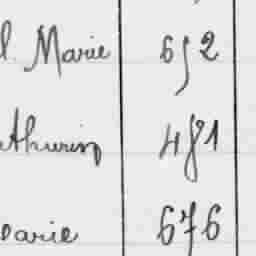 l. Marie 652
athurin 481
arie 676